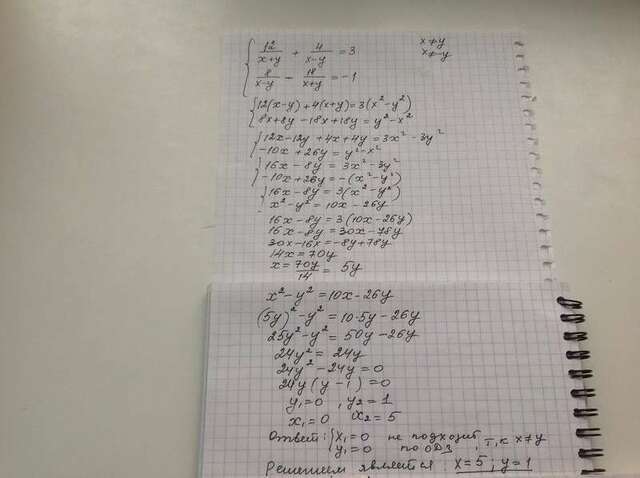 { 12/(x+y) + 4/(x-y) = 3    x≠y
8/(x-y) - 18/(x+y) = -1    x≠-y
{ 12(x-y)+4(x+y)=3(x²-y²)
8x+8y-18x+18y=y²-x²
{ 12x-12y+4x+4y=3x²-3y²
-10x+26y=y²-x²
{ 16x-8y=3x²-3y²
-10x+26y=-(x²-y²)
{ 16x-8y=3(x²-y²)
x²-y²=10x-26y
16x-8y=3(10x-26y)
16x-8y=30x-78y
30x-16x=-8y+78y
14x=70y
x=70y/14=5y
x²-y²=10x-26y
(5y)²-y²=10·5y-26y
25y²-y²=50y-26y
24y²=24y
24y²-24y=0
24y(y-1)=0
y₁=0, y₂=1
x₁=0 x₂=5
Ответ: { x₁=0 не подходит, т,к x≠y
y₁=0 по ОДЗ
Решением является: x=5; y=1